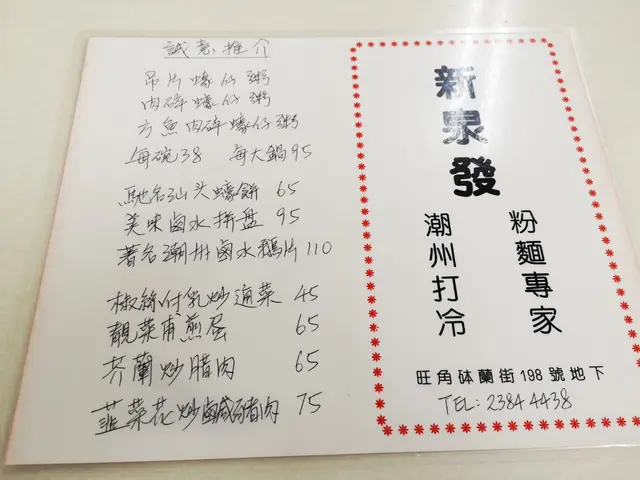 誠意推介
吊片蠔仔粥
肉碎蠔仔粥
方魚肉碎蠔仔粥
每碗38 每大鍋95
馳名汕头蠔餅 65
美味鹵水拼盘 95
著名潮州鹵水鵝片 110
椒絲付乳炒通菜 45
靚菜甫煎蛋 65
芥蘭炒腊肉 65
韮菜花炒鹹豬肉 75
新泉發
粉麵專家
潮州打冷
旺角砵蘭街198號地下
TEL: 2384 4438